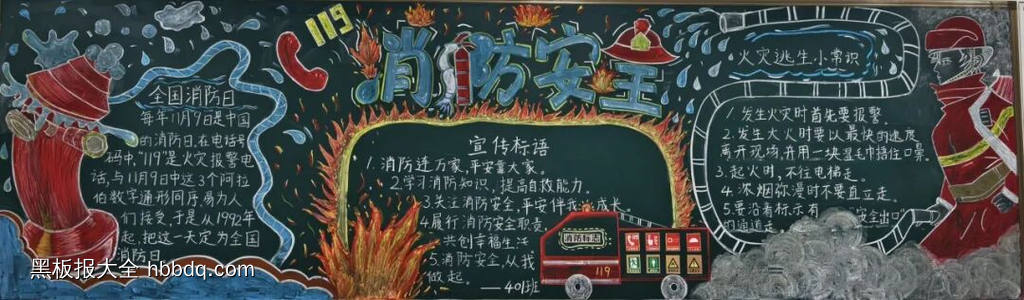 119
消防安全
全国消防日
每年11月9日是中国
的消防日.在电话号
码中,"119"是火灾报警电
话,与11月9日中这3个阿拉
伯数字通形同序.易为人
们接受,于是从1992年
起,把这一天定为全国
消防日。
宣传标语
1.消防进万家,平安靠大家。
2.学习消防知识,提高自救能力。
3.关注消防安全,平安伴我 成长。
4.履行消防安全职责,
共创幸福生活
5.消防安全,从我
做起。
——401班
消防标志
119
火灾逃生小常识
1.发生火灾时首先要报警。
2.发生大火时要以最快的速度
离开现场,并用一块湿毛巾捂住口鼻。
3.起火时,不往电梯走。
4.浓烟弥漫时不要直立走。
5.要沿着标示有 安全出口
的通道走。
黑板报大全 hbbdq.com